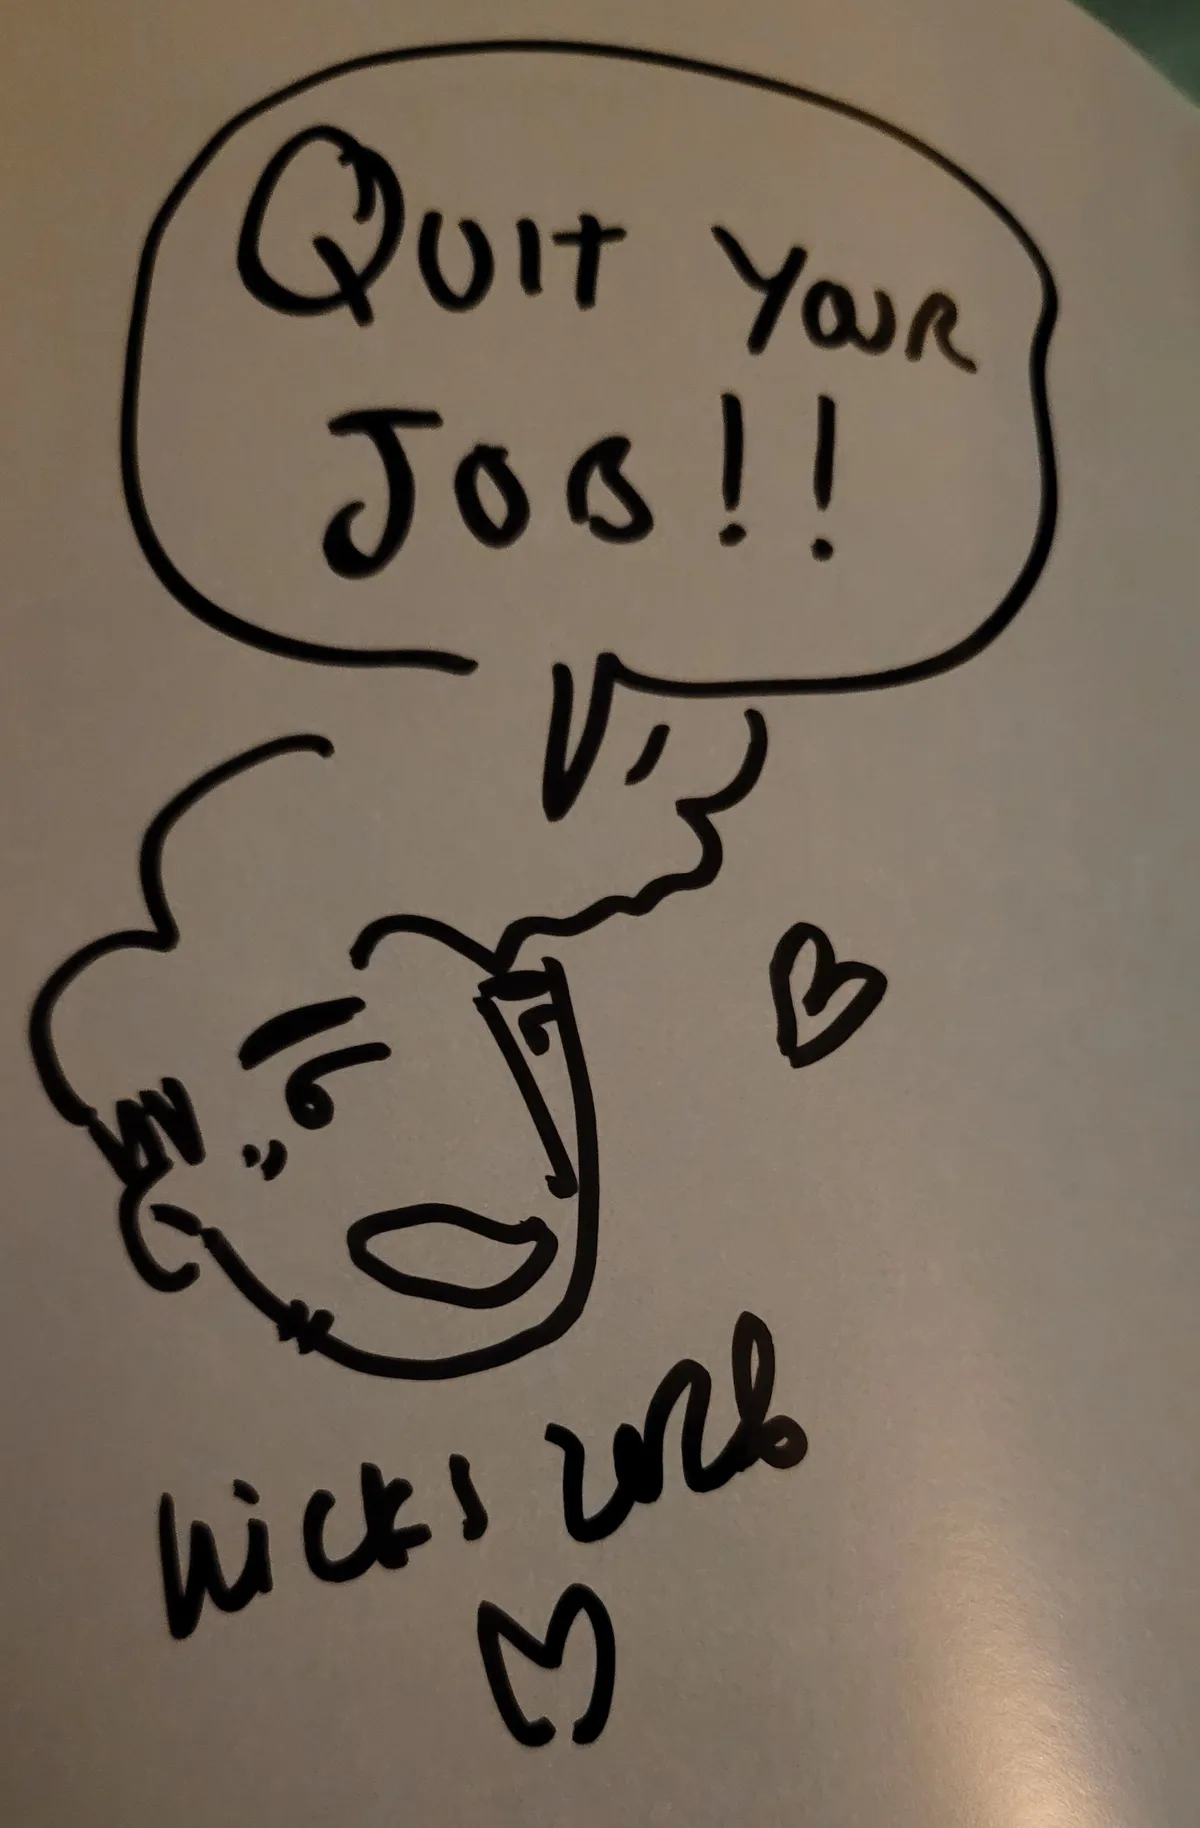 QUIT YOUR
JOB!!
hicks 2026